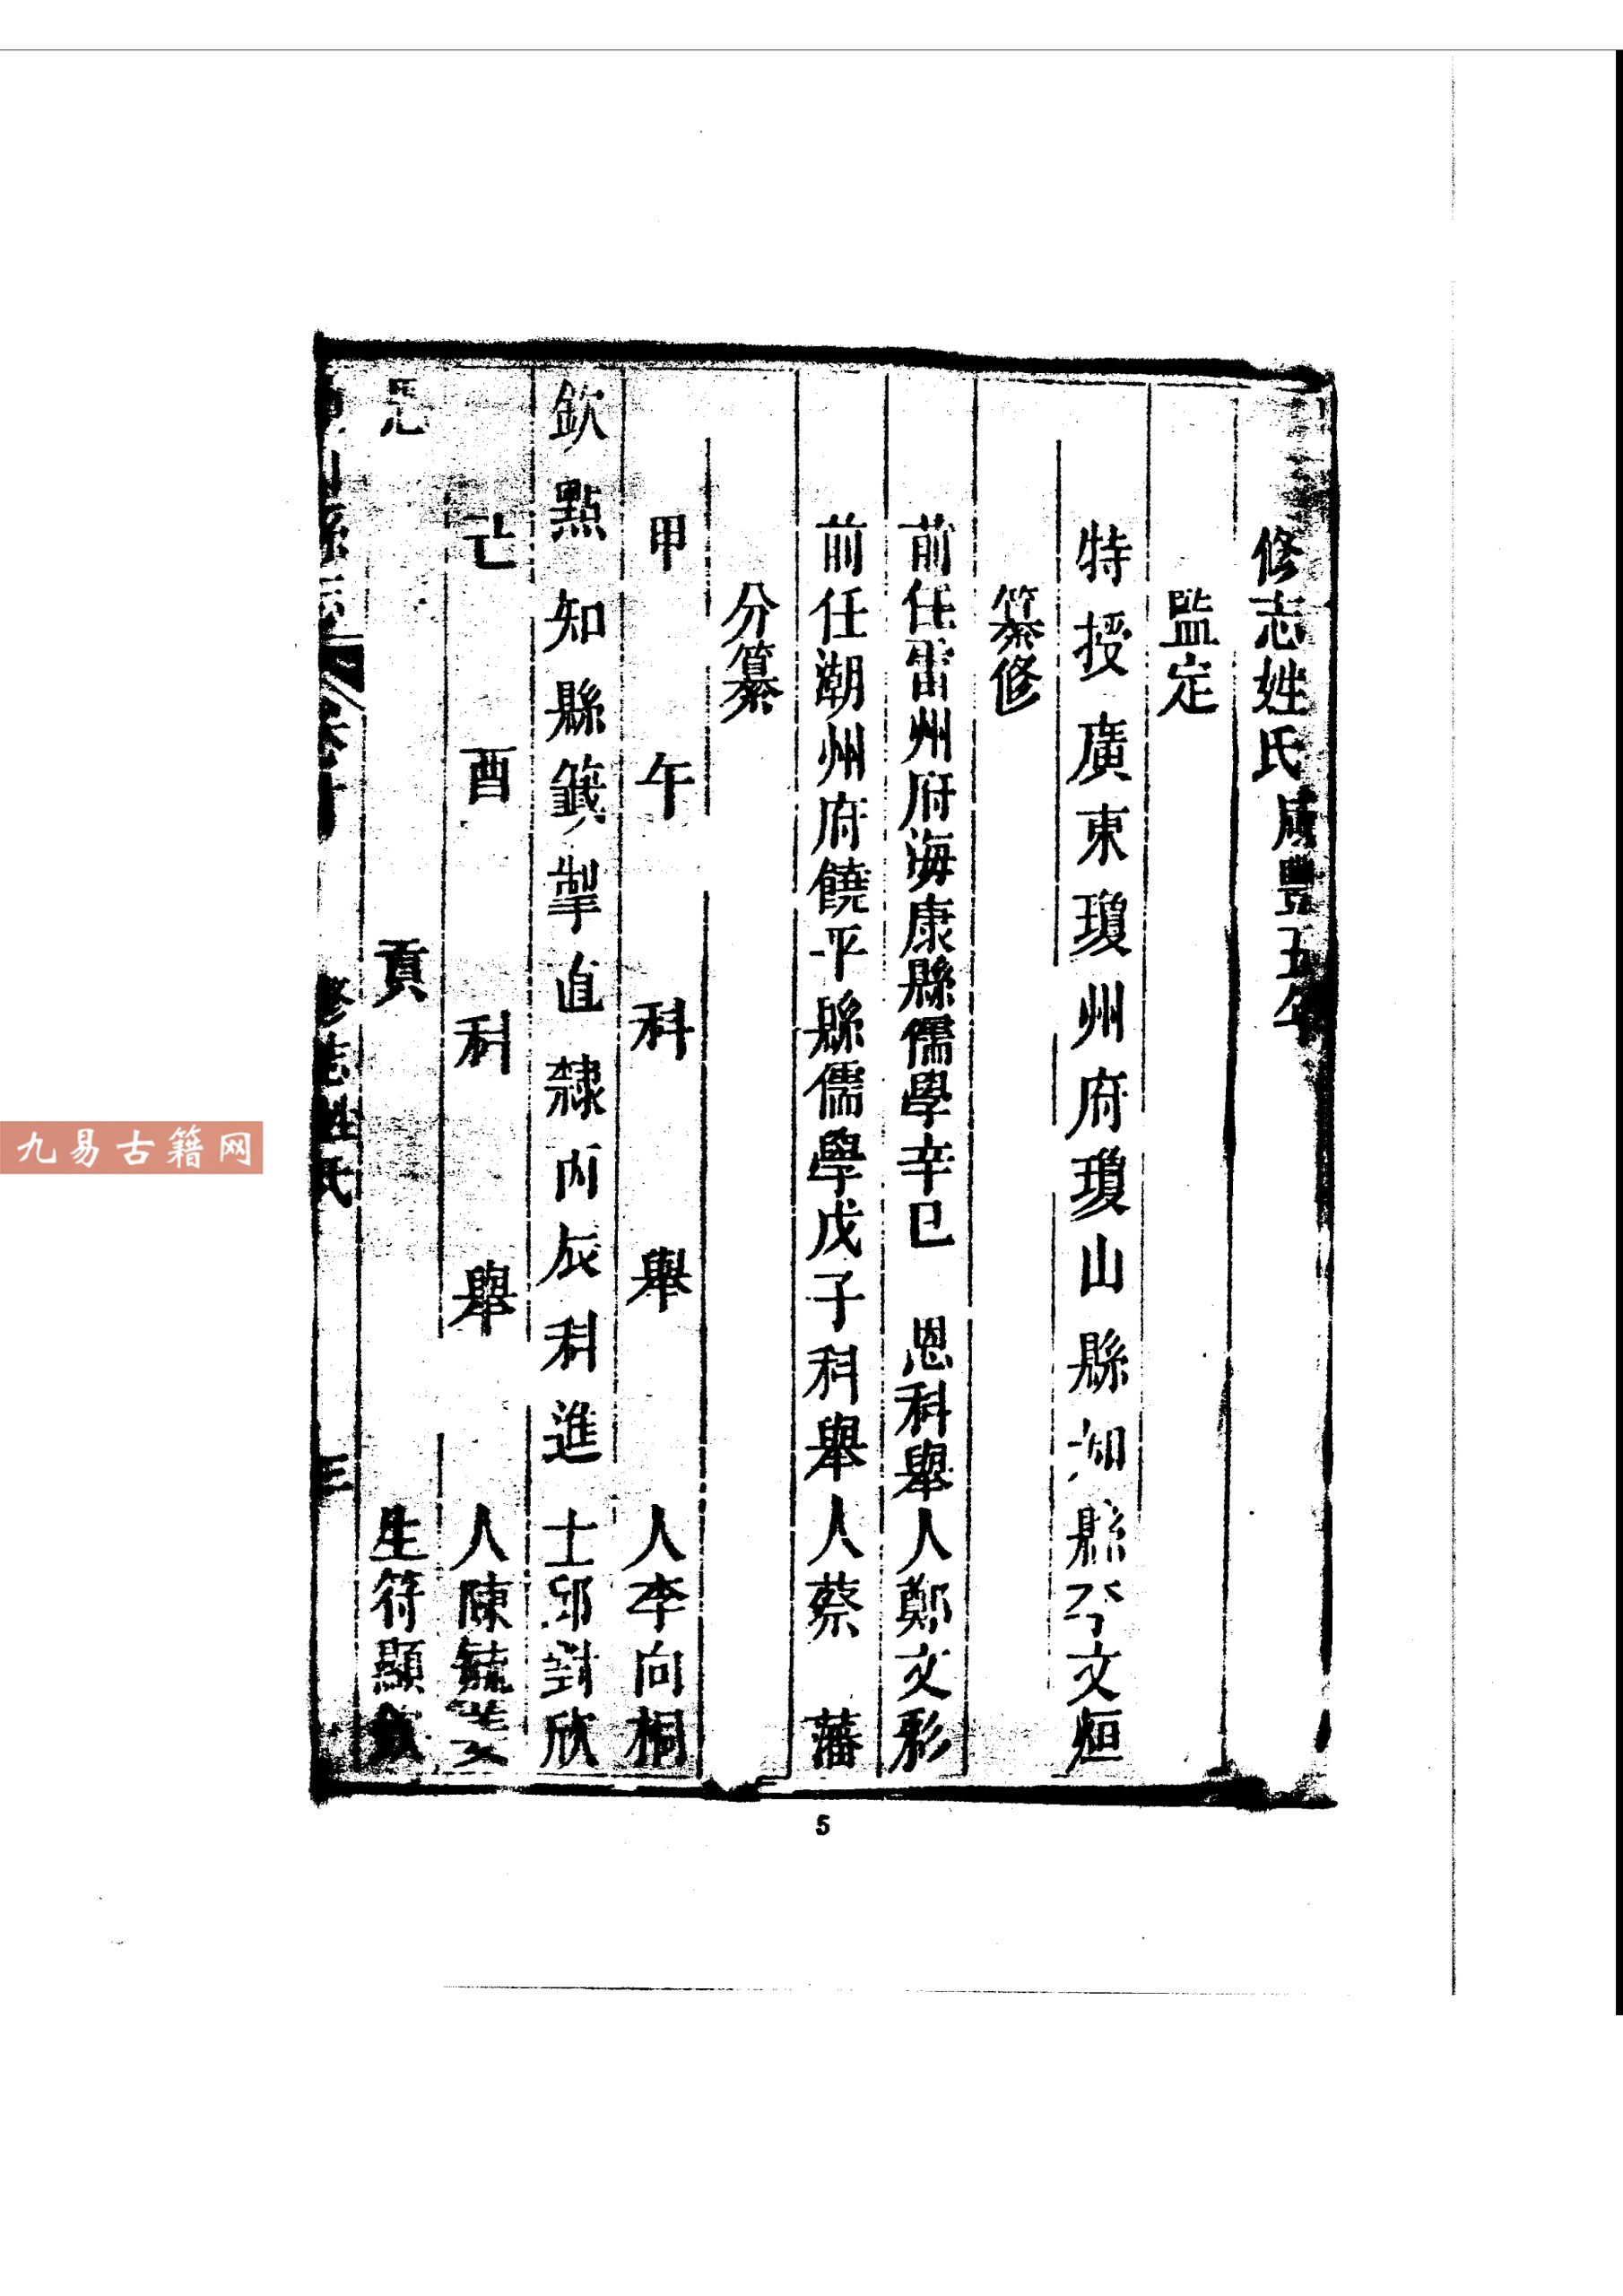 修志姓氏咸豐五年
監定
特授廣東瓊州府瓊山縣知縣李文烜
纂修
前任雷州府海康縣儒學辛巳 恩科舉人鄭文彩
前任潮州府饒平縣儒學戊子科舉人蔡 藩
分纂
甲午科舉人李向桐
欽點知縣籤掣直隸丙辰科進士邱對欣
己酉科舉人陳毓
恩貢生符顯
山縣志 修志姓氏 三
5
九易古籍网